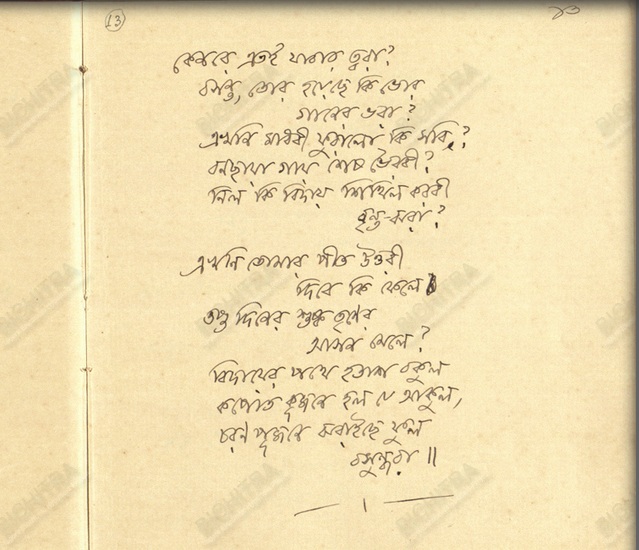 13
১৩
কেন রে এতই যাবার ত্বরা?
বসন্ত, তোর হয়েছে কি ভোর
গানের ভরা?
এখনি মাধবী ফুরালো কি সবি?
বনছায়া গায় শেষ ভৈরবী?
নিল কি বিদায় শিথিল করবী
বৃন্ত-ঝরা?
এখনি তোমার পীত উত্তরী
দিবে কি ফেলে
তপ্ত দিনের শুষ্ক তৃণের
আসন মেলে?
বিদায়ের পথে হতাশ বকুল
কপোত কূজনে হল যে আকুল,
চরণ পূজনে ঝরাইছে ফুল
বসুন্ধরা॥
BICHITRA